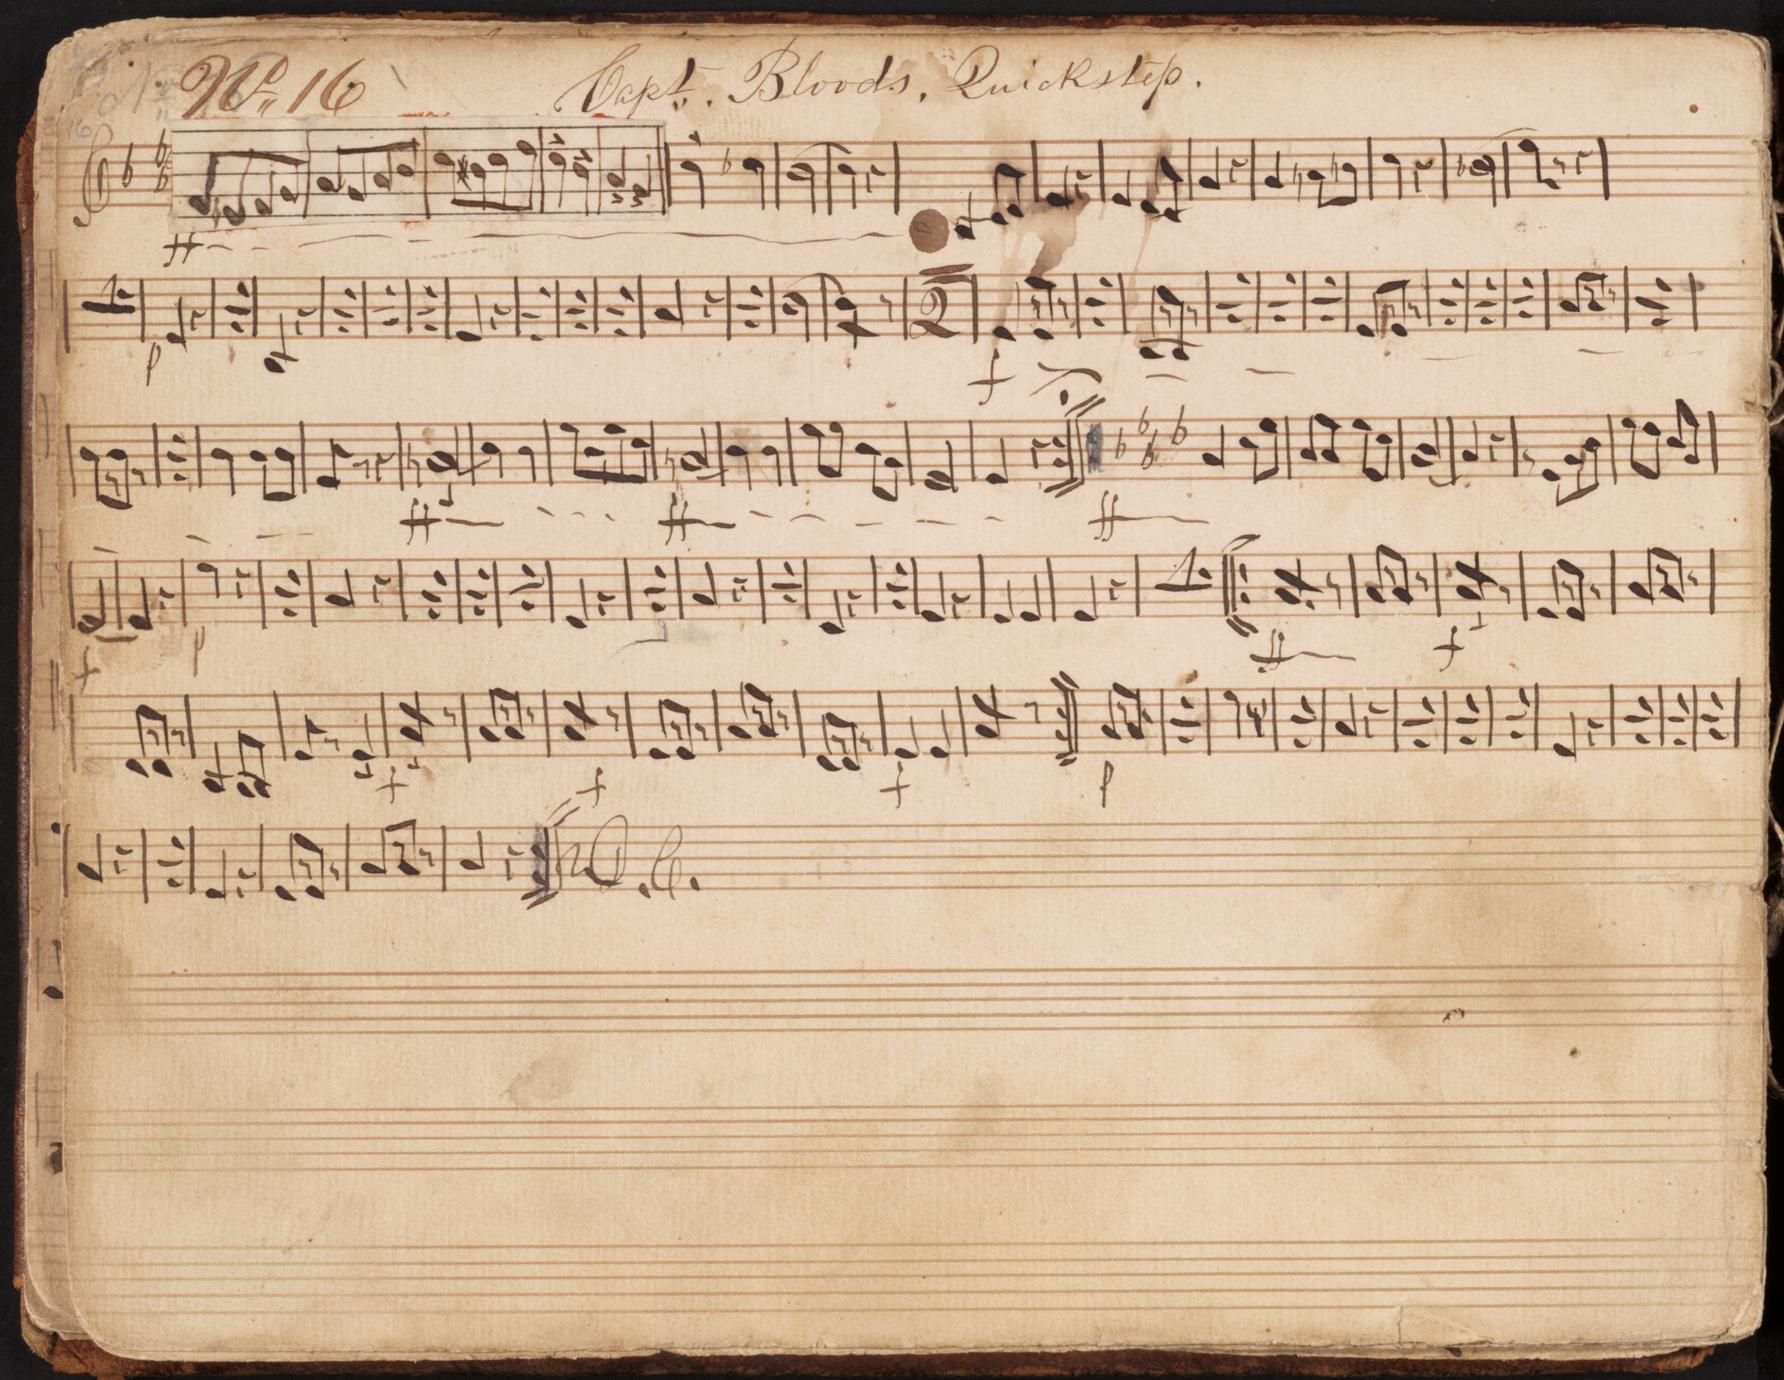 No. 16 Capt. Bloods. Quickstep.
ff
p 2 f
ff ff ff
f p ff f
f f f p
D.C.